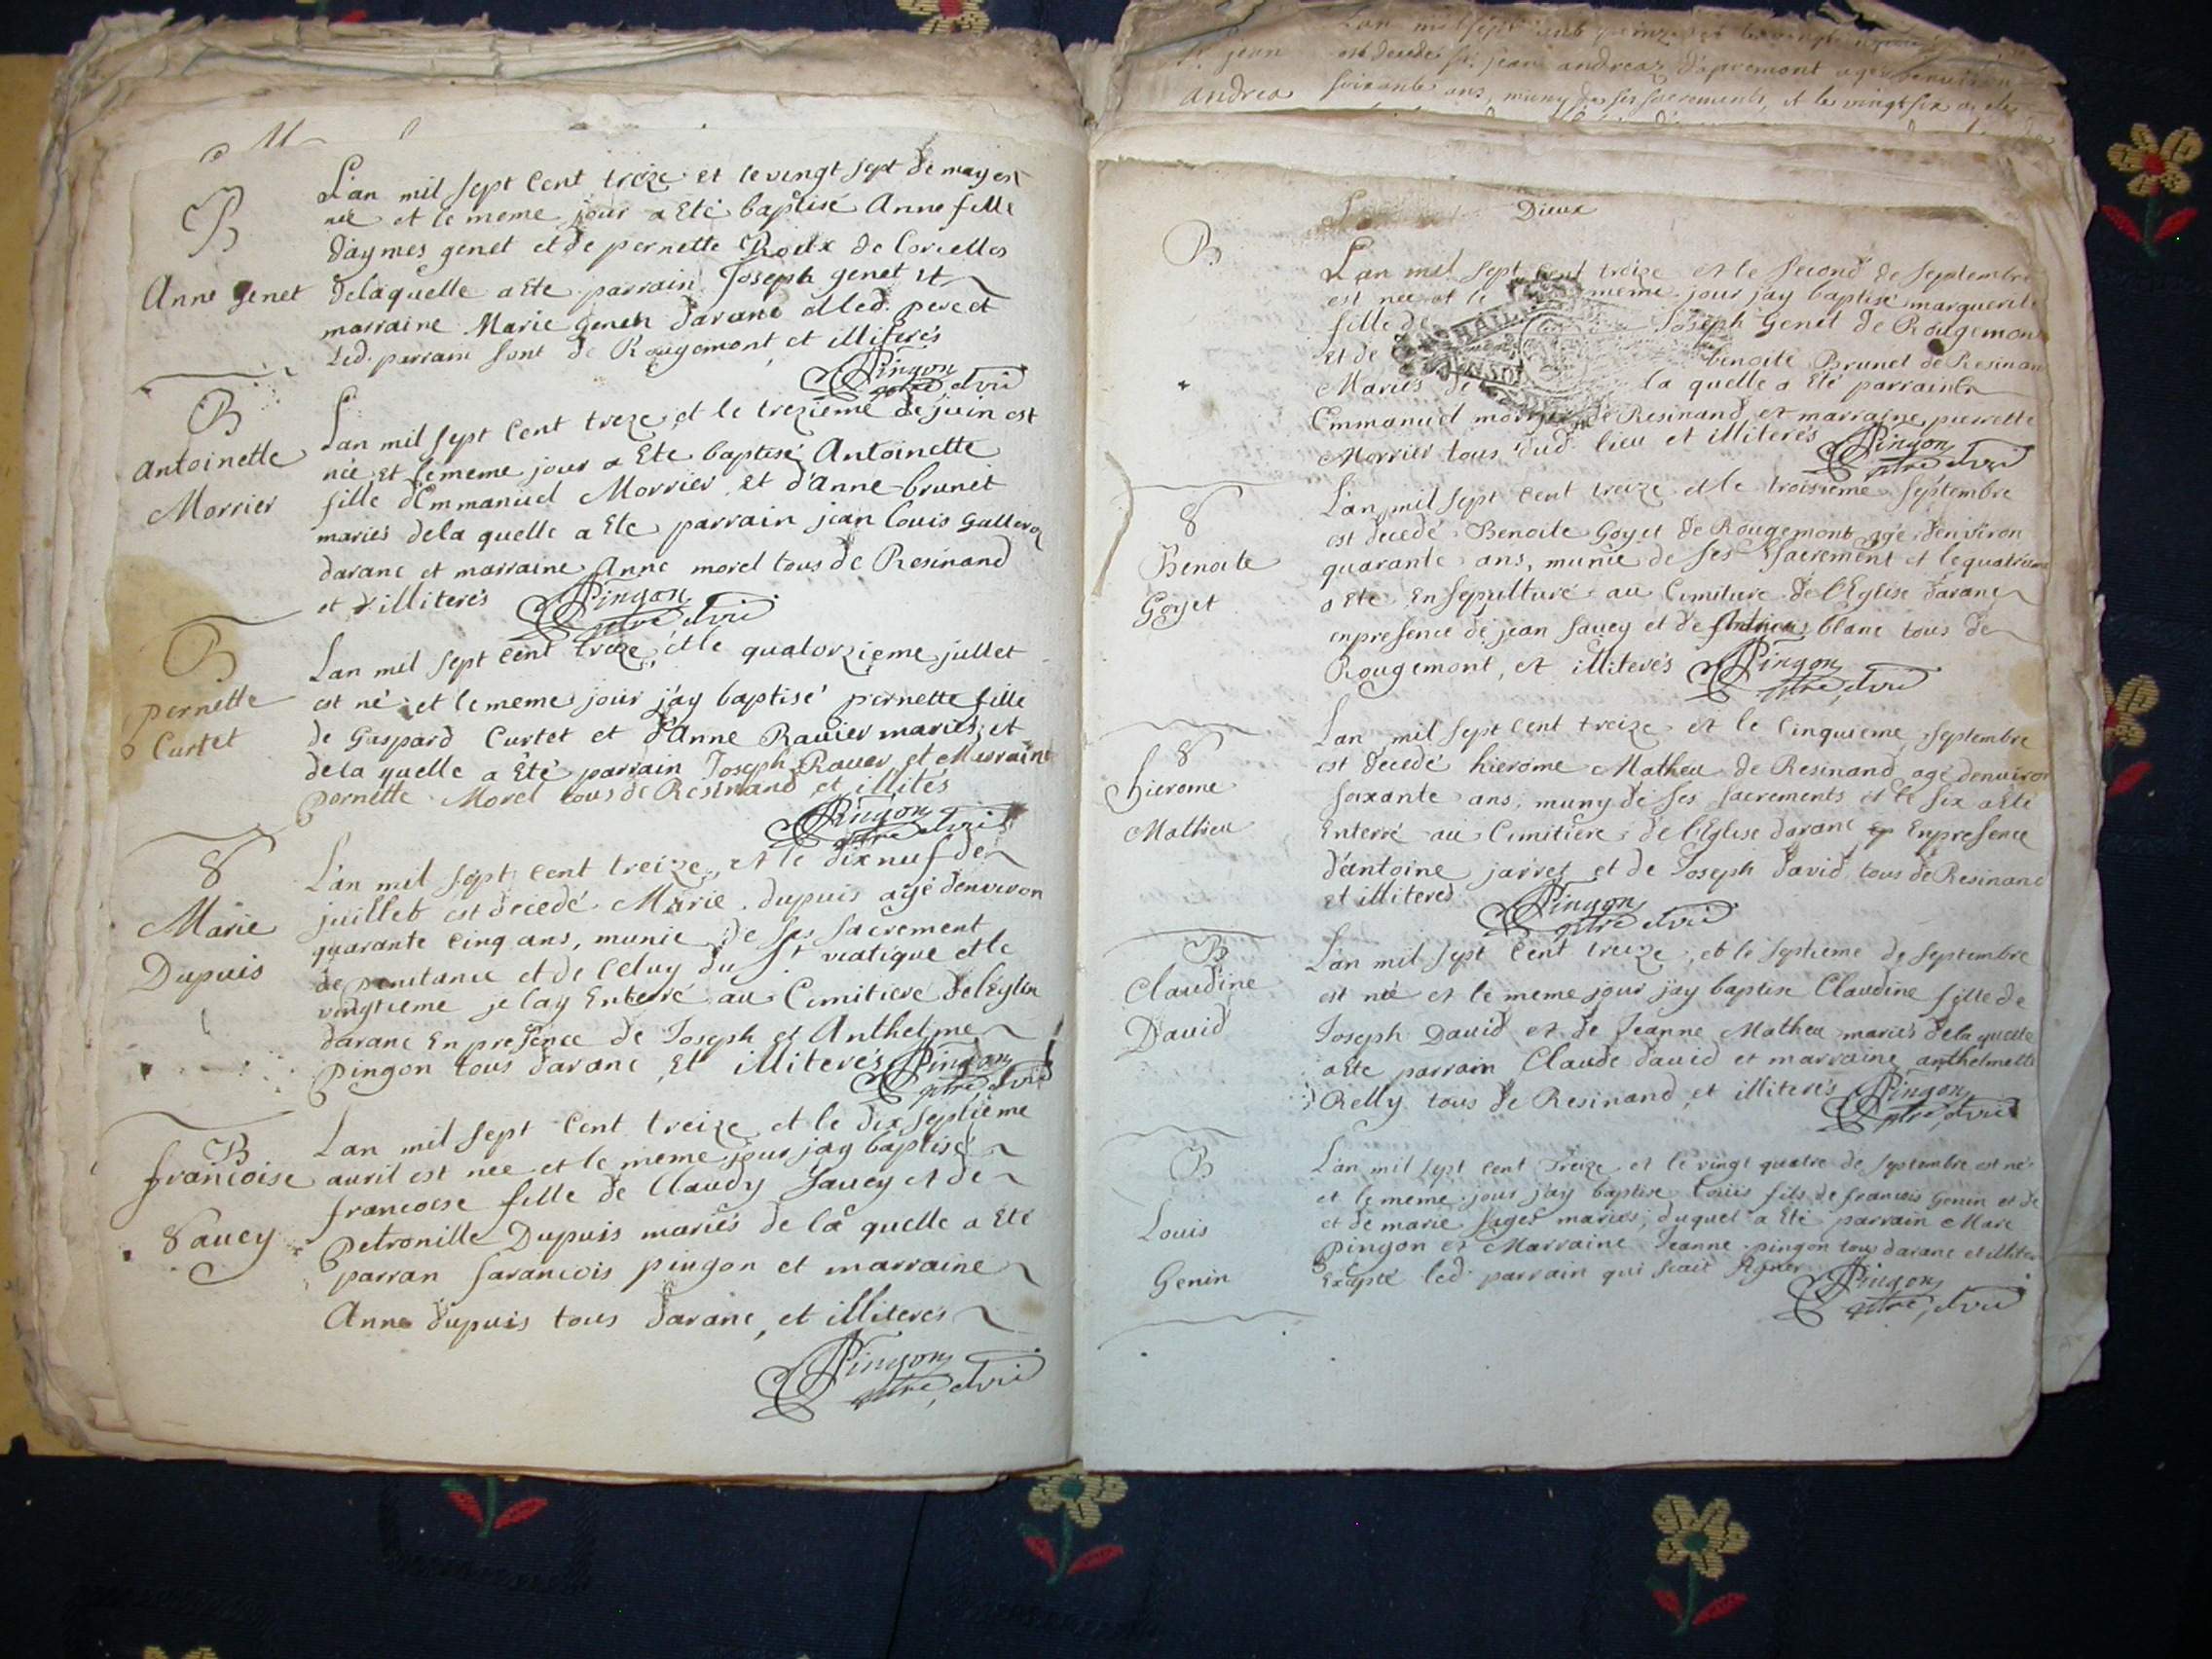 B
Anne genet
L'an mil sept Cent treize et le vingt sept de may est
née et le meme jour a eté baptisé Anne fille
d'aymes genet et de pernette Roux de Corcelles
delaquelle a ete parrain Joseph genet et
marraine Marie Genet d'aranc led. pere et
Led. parrain sont de Rougemont, et illiterés
Pingon
ptre et vic
B
Antoinette
Morrier
L'an mil sept Cent treze et le trezieme de juin est
née et le meme jour a Ete baptisé Antoinette
fille d'Emmanuel Morrier et d'Anne brunet
mariés dela quelle a Ete parrain jean louis
daranc et marraine Anne morel tous de Resinand
et illiterés Pingon
ptre et vic
B
pernette
Curtet
L'an mil sept Cent treze, et le quatorzieme jullet
est né et le meme jour j'ay baptisé pernette fille
de Gaspard Curtet et d'Anne Ravier mariés, et
dela quelle a été parrain Joseph Raver et Marraine
pernette Morel tous de Resinand et illités
Pingon
ptre et vic
S
Marie
Dupuis
L'an mil sept cent treize, et le dix nuf de
juillet est decedé Marie dupuis agé denviron
quarante cinq ans, munie de ses sacrement
de penitance et de Celuy du St viatique et le
vingtieme je lay Enterré au Cimitiere de l'Eglise
daranc En presence de Joseph et Anthelme
pingon tous daranc, Et illiterés Pingon
ptre et vic
B
françoise
Saucy
L'an mil sept Cent treize et le dix septieme
avril est nee et le meme jour jay baptisé
francoise fille de Claudy Saucy et de
Petronille Dupuis mariés de la quelle a Eté
parran sarancois pingon et marraine
Anne dupuis tous daranc, et illiterés
Pingon
ptre, et vic
L'an mil sept cent
Sr. jean
andrea
est decedé Sr. jean andrea d'apremont agé denviron
soixante ans, muny de ses sacrements, et le vingt six a ete
Dieux
B
L'an mil sept Cent treize et le second de septembre
est nee et le meme jour j'ay baptisé marguerite
fille de Joseph Genet de Rougemont
et de benoite Brunet de Resinand
Mariés de la quelle a été parrain
Emmanuel morrier de Resinand et marraine pierrette
Morrier tous dud. lieu et illiterés Pingon
ptre et vic
S
Benoite
Goyet
L'an mil sept cent treize et le troisieme septembre
est decedé Benoite Goyet de Rougemont agé denviron
quarante ans, munie de ses sacrement et le quatrieme
a Ete Ensepulturé au Cimitiere de l'Eglise daranc
enpresence de jean saucy et de blanc tous de
Rougemont, et illiterés Pingon
ptre et vic
S
hierome
Matheu
L'an mil sept cent treize et le Cinquieme septembre
est decedé hierome Matheu de Resinand agé denviron
soixante ans, muny de ses sacrements et le six a été
Enterré au Cimitiere de l'Eglise daranc Enpresence
d'antoine jarret et de Joseph david tous de Resinand
et illiteres Pingon
ptre et vic
B
Claudine
David
L'an mil sept Cent treize, et le septieme de septembre
est née et le meme jour j'ay baptise Claudine fille de
Joseph David et de Jeanne Matheu mariés dela quelle
a Ete parrain Claude david et marraine anthelmette
Relly tous de Resinand, et illiterés Pingon
ptre, et vic
B
Louis
Genin
L'an mil sept cent Treize et le vingt quatre de septembre est né
et le meme jour j'ay baptise louis fils de francois Genin et de
et de marie sages mariés, duquel a Eté parrain Marc
pingon et Marraine Jeanne pingon tous daranc et
Exepté led. parrain qui scait signer Pingon
ptre, et vic